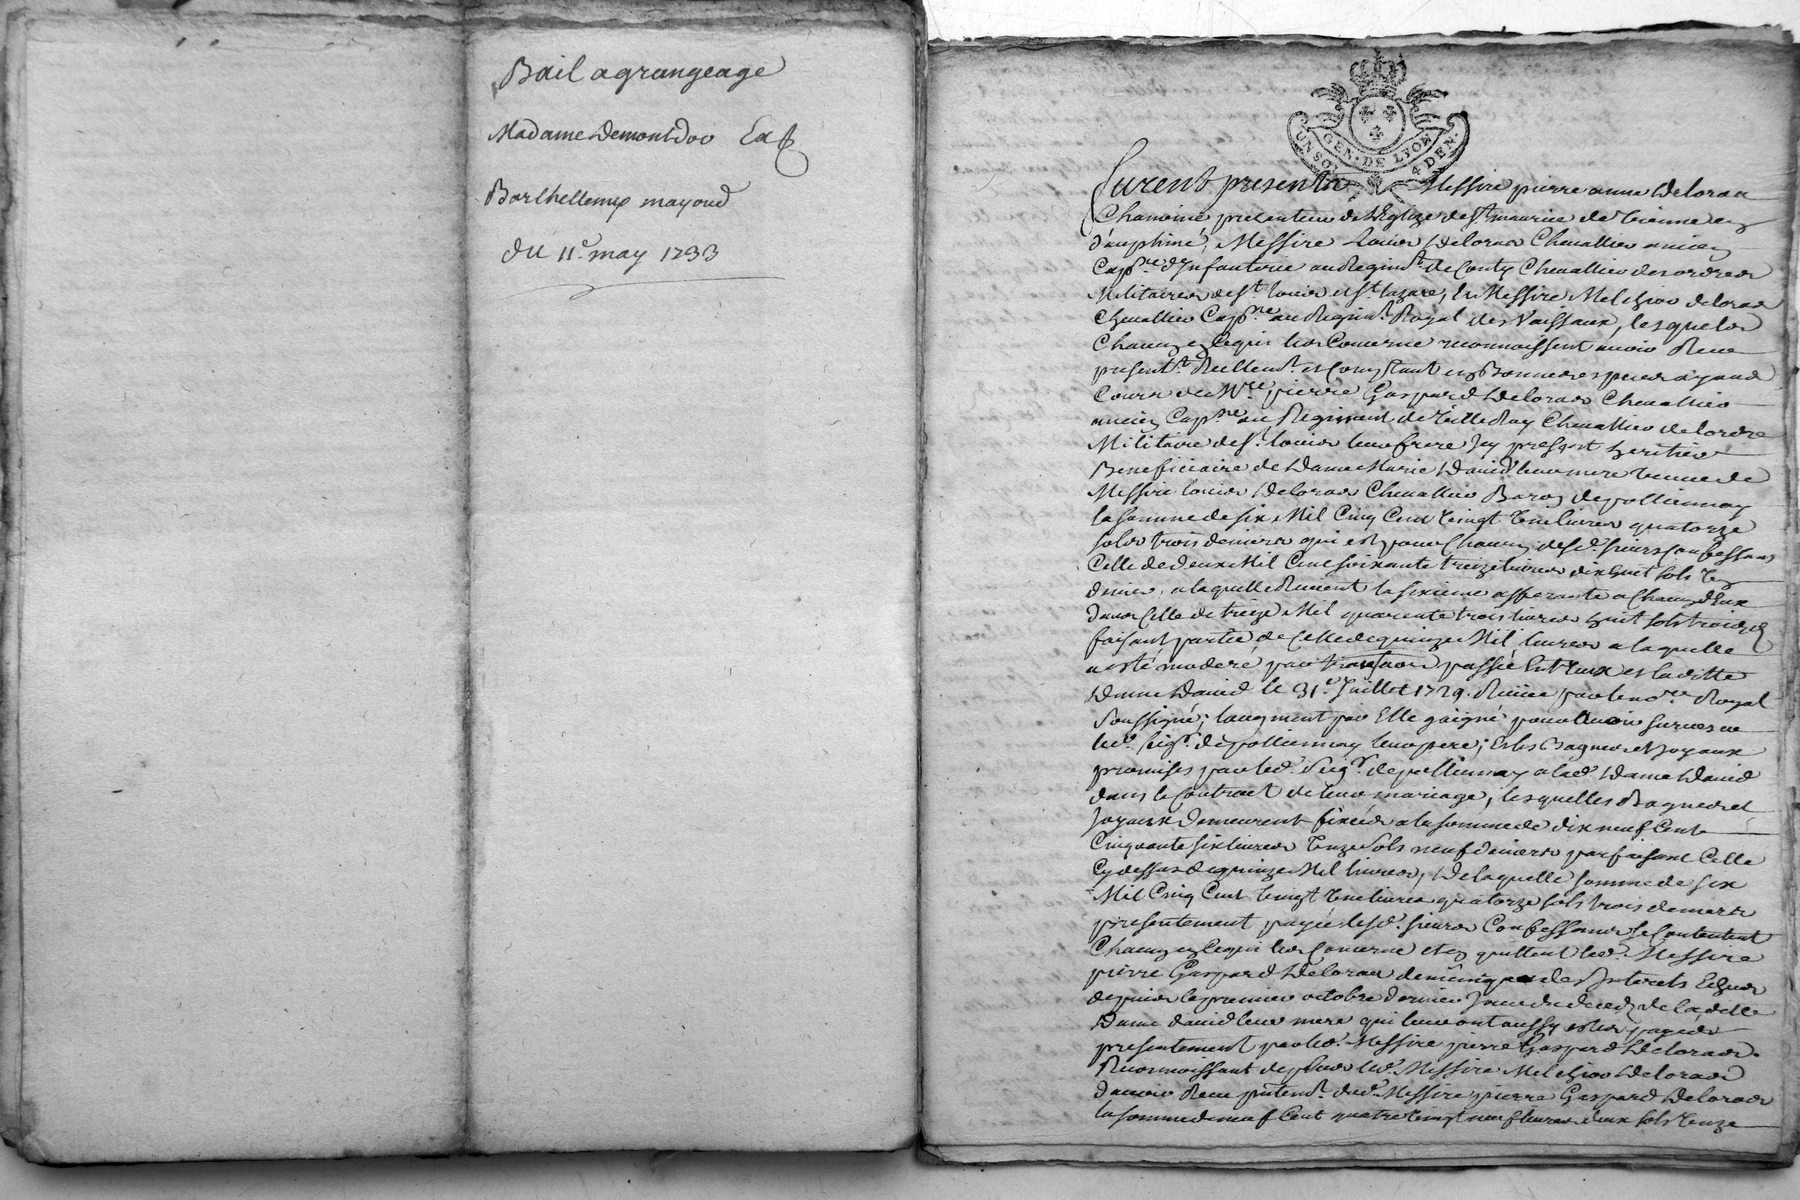 Bail a grangeage
Madame Demontdor Et
Barthellemy mayoud
du 11e. may 1733
GEN. DE LYON
UN SOL 4 DEN.
Furent presents Messire pierre anne Deloras
Chanoine precenteur de l'Eglize de st. maurice de Vienne en
dauphiné, Messire Louis Deloras Chevallier ancien
Capne. d'Infanterie au Regimt. de Conty Chevallier des ordres
Militaires de st. Louis et st. Lazare, Et Messire Melchior deloras
Chevallier Capne. au Regimt. Royal des Vaissaux, lesquels
Chacun en ce qui les Concerne reconnoissent avoir Receu
presentt. Reellemt. et Comptant en Bonnes especes ayant
Cours de Mre. pierre Gaspard Deloras Chevallier
ancien Capne. au Regimant de Villeroy Chevallier de lordre
Militaire de st. Louis leur frere Icy present heritier
Beneficiaire de Dame Marie David leur mere veuve de
Messire Louis Deloras Chevallier Baron de pollionnay
la somme de six Mil Cinq Cent Vingt Une livres quatorze
sols trois deniers qui est pour Chacun desd. sieurs Confessants
Celle de deux Mil Cent soixante treize livres dix huit sols Un
denier, a laquelle Revient la sixieme afferante a Chacun d'Eux
dans Celle de treize Mil quarente trois livres huit sols trois d.
faisant partie de Celle de quinze Mil livres a laquelle
a esté moderé par transaction passée Entr'eux et laditte
Dame David le 31e. Juillet 1729. Receue par le nore. Royal
soussigné, laugment par Elle gaigné pour avoir survescu
led. seigr. de pollionnay leur pere; Et les Bagues et Joyaux
promises par led. seigr. de pollionnay a lad. Dame David
dans le Contract de leur mariage, lesquelles Bagues et
Joyaux demeurent fixées a la somme de dix neuf Cent
Cinquante six livres Unze sols neuf deniers parfaisant Celle
Cy dessus de quinze Mil livres, De laquelle somme de six
Mil Cinq Cent Vingt Une livres quatorze sols trois deniers
presentement payée lesd. sieurs Confessants se Contentent
Chacun en ce qui les Concerne et en quittent led. Messire
pierre Gaspard Deloras de mesme que des Interets Echus
depuis le premier octobre dernier Jour du deced de laditte
Dame david leur mere qui leur ont aussy estés payés
presentement par led. Messire pierre Gaspard Deloras.
Reconnoissant de plus led. Messire Melchior Deloras
davoir Receu presentemt. dud. Messire pierre Gaspard Deloras
la somme de neuf Cent quatre Vingt neuf livres deux sols Unze